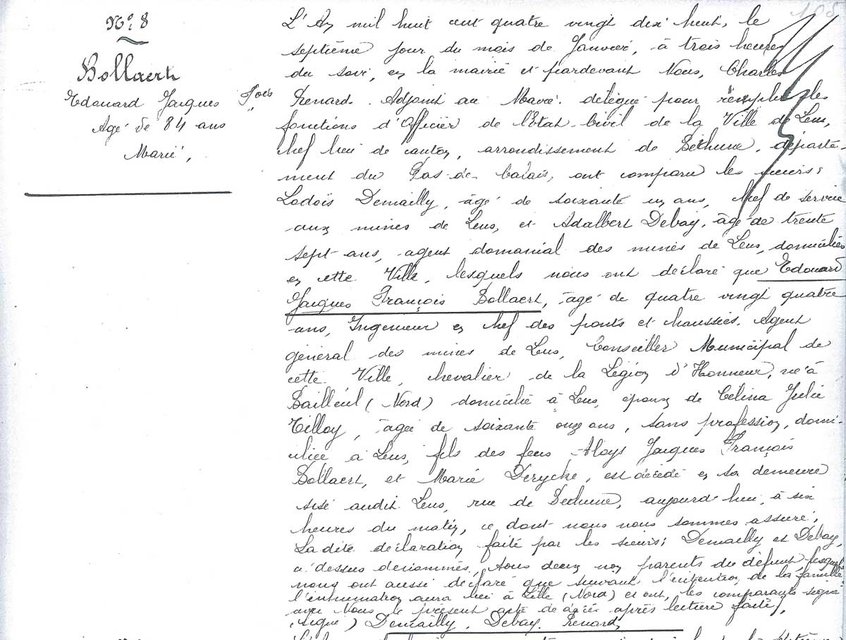 N° 8
Bollaert
Edouard Jacques Fois
Agé de 84 ans
Marié,
L'An mil huit cent quatre vingt dix huit, le
septième jour du mois de Janvier, à trois heures
du soir, en la mairie et pardevant Nous, Charles
Renard. Adjoint au Maire. délégué pour remplir les
fonctions d'Officier de l'Etat-Civil de la Ville de Lens,
chef lieu de canton, arrondissement de Béthune, départe-
ment du Pas-de-Calais, ont comparu les sieurs;
Lodoïs Demailly, âgé de soixante un ans, chef de service
aux mines de Lens, et Adalbert Debay, âgé de trente
sept ans, agent domanial des mines de Lens, domiciliés
en cette Ville, lesquels nous ont déclaré que Edouard
Jacques François Bollaert, âgé de quatre vingt quatre
ans, Ingénieur en chef des ponts et chaussées. Agent
général des mines de Lens, Conseiller Municipal de
cette Ville, chevalier de la Légion d'Honneur, né à
Bailleul (Nord) domicilié à Lens, époux de Célina Julie
Tilloy, âgée de soixante onze ans, sans profession, domi-
ciliée à Lens, fils des feus Aloys Jacques François
Bollaert, et Marie Deryche, est décédé en sa demeure
sise audit Lens, rue de Béthune, aujourd'hui, à six
heures du matin, ce dont nous nous sommes assuré;
La dite déclaration faite par les sieurs; Demailly et Debay,
ci dessus dénommés, tous deux non parents du défunt, lesquels
nous ont aussi déclaré que suivant l'intention de la famille
l'inhumation aura lieu à Lille (Nord) et ont, les comparants signé
avec Nous le présent acte de décès après lecture faite,
(Signé) Demailly, Debay, Renard,